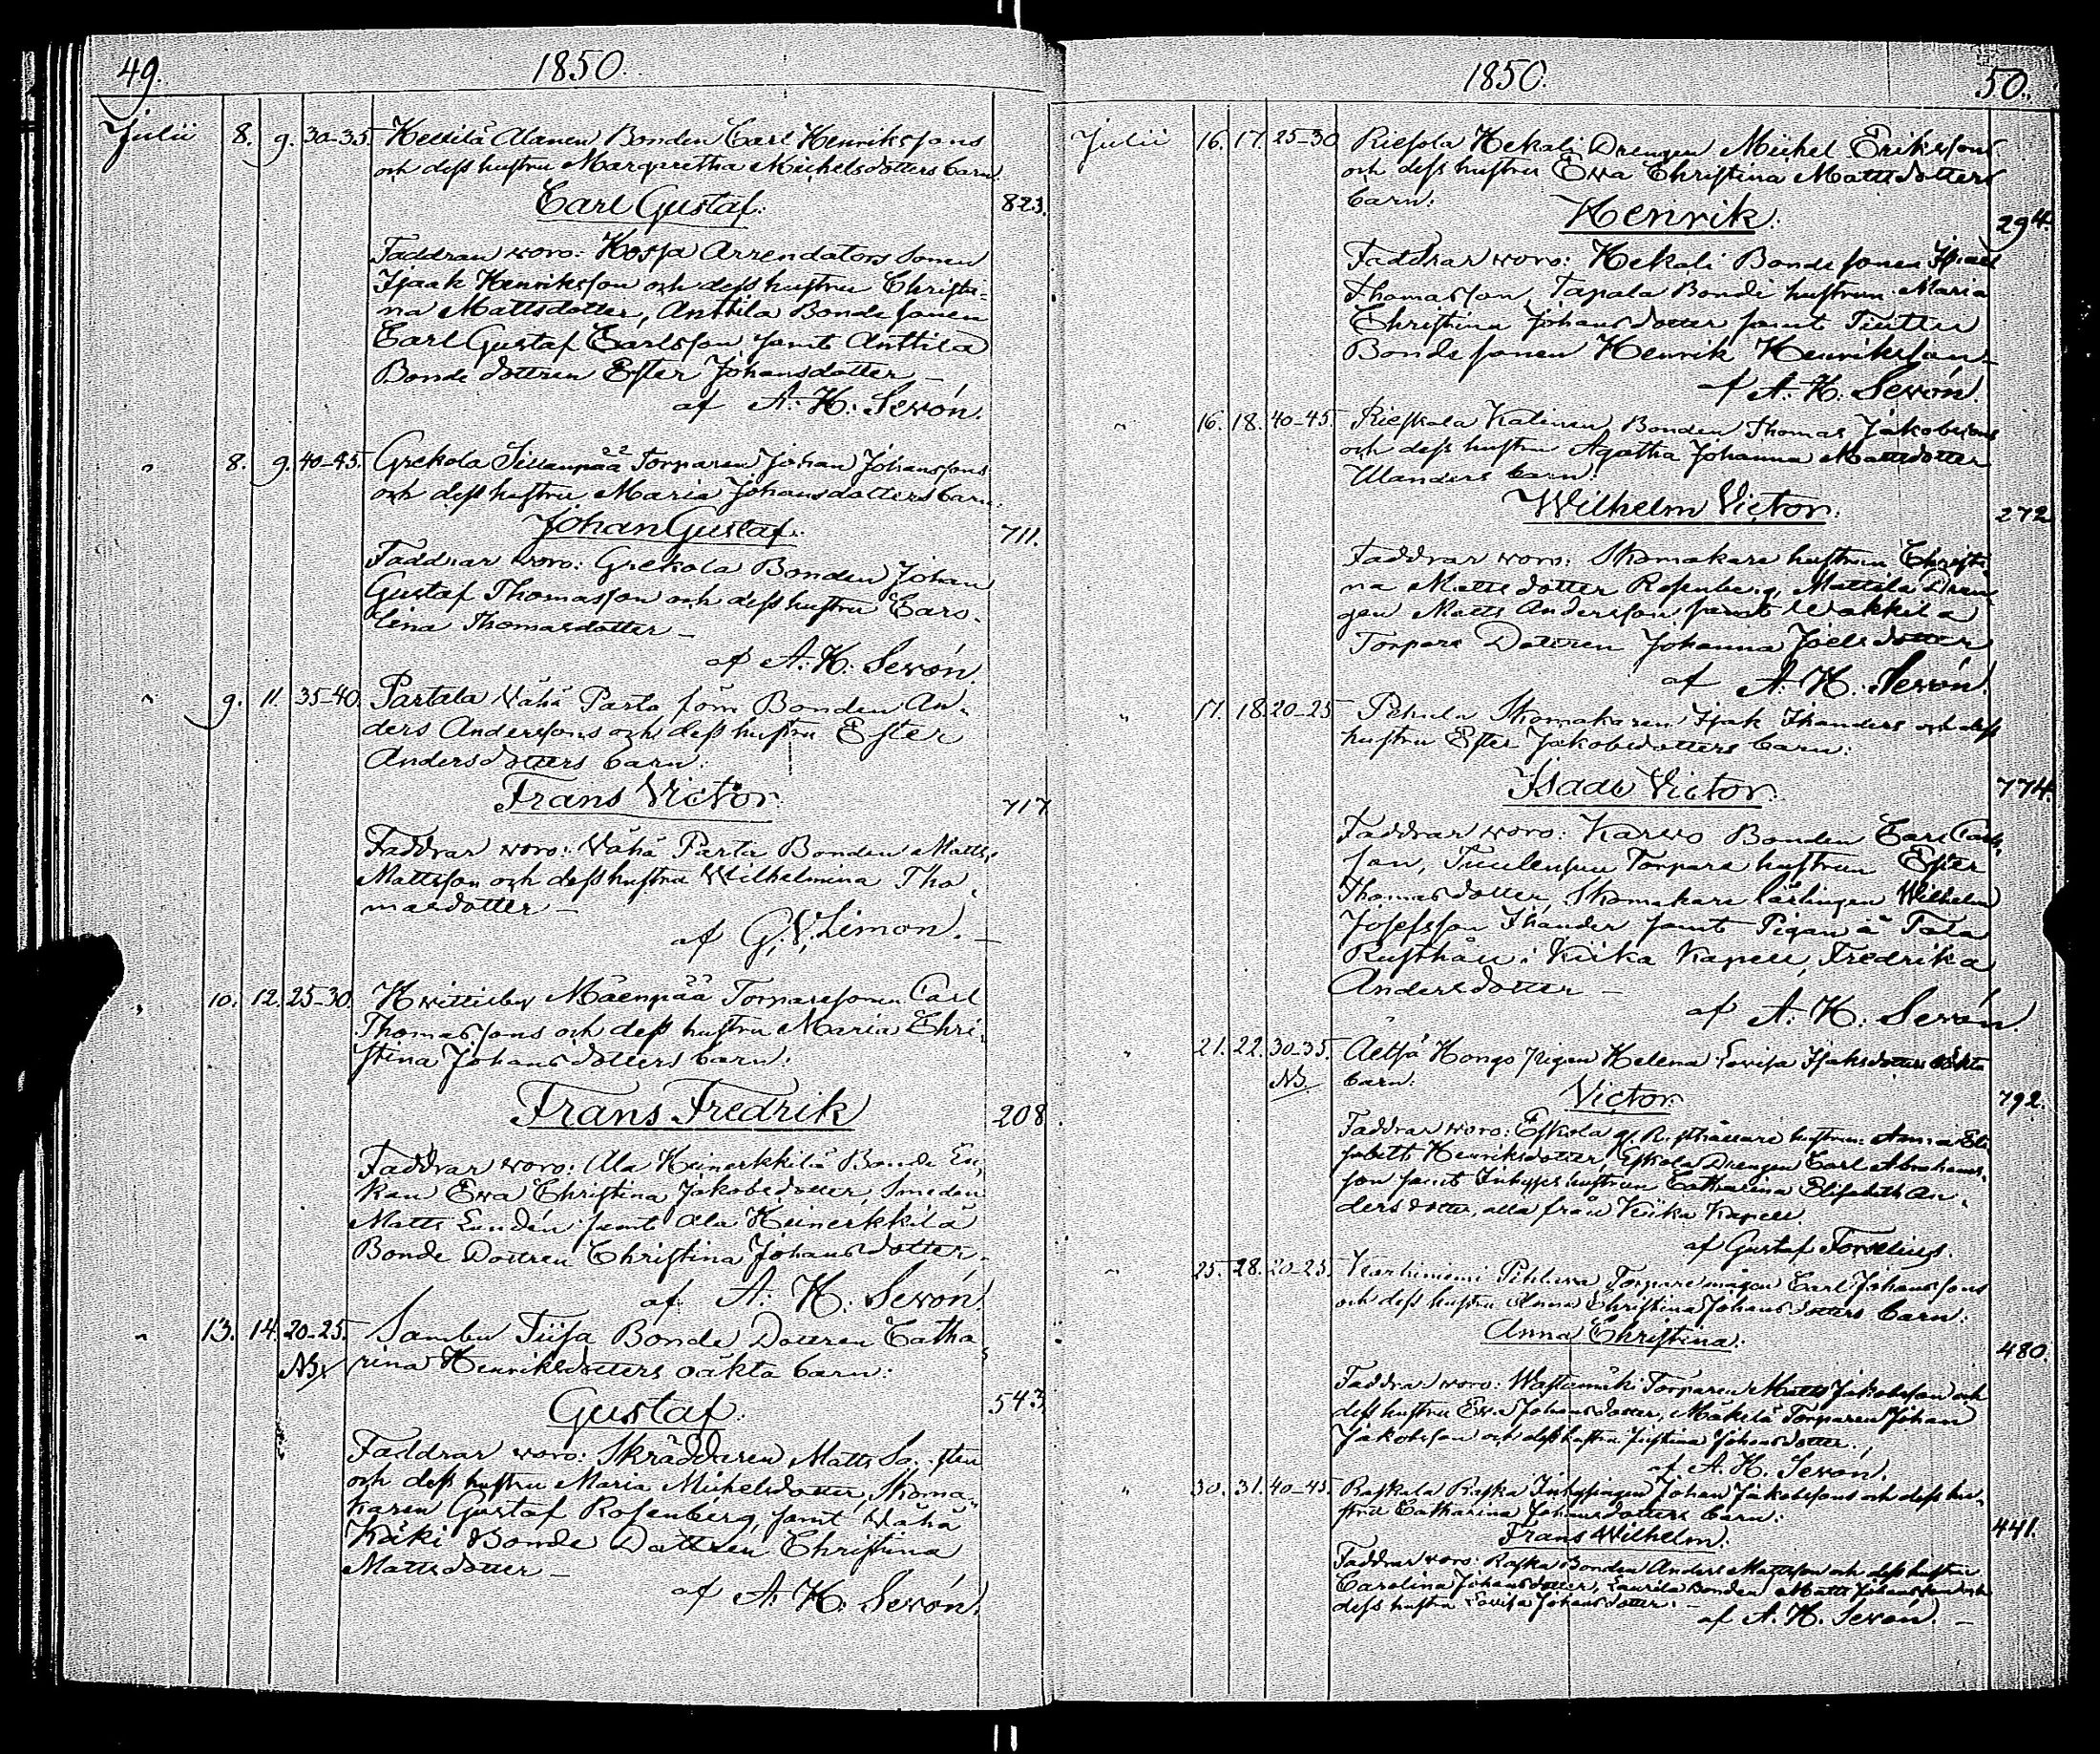 49. 1850.
Julii 8. 9. 30-35. Alanen Bonden Carl Henrikssons
och dess hustru Margaretha Michelsdotters barn:
Carl Gustaf: 823.
Faddrar woro: Arrendators Sonen
Isaak Henriksson och dess hustru Christi-
na Mattsdotter, Anttila Bonde sonen
Carl Gustaf Carlsson samt Anttila
Bonde dottren Ester Johansdotter –
af A: H: Sevón.
" 8. 9. 40-45. Grekola Sillanpää Torparen Johan Johanssons
och dess hustru Maria Johansdotters barn:
Johan Gustaf: 711.
Faddrar woro: Grekola Bonden Johan
Gustaf Thomasson och dess hustru Caro-
lina Thomasdotter –
af A: H: Sevón.
" 9. 11. 35-40. Partala Vähä Parta Bonden An-
ders Anderssons och dess hustru Ester
Andersdotters barn:
Frans Victor: 717
Faddrar woro: Vähä Parta Bonden Matts
Mattsson och dess hustru Wilhelmina Tho-
masdotter –
af G: V: Limon. –
" 10. 12. 25-30. Mäenpää Torparesonen Carl
Thomassons och dess hustru Maria Chri-
stina Johansdotters barn:
Frans Fredrik 208.
Faddrar woro: Ala Heinerkkilä Bonde En-
kan Ewa Christina Jakobsdotter, Smeden
Matts Lundén samt Ala Heinerkkilä
Bonde Dottren Christina Johansdotter –
af A: H: Sevón.
" 13. 14. 20-25. Sambu Tiisa Bonde Dottren Catha-
NB. rina Henriksdotters oäkta barn:
Gustaf: 543.
Faddrar woro: Skräddaren Matts
och dess hustru Maria Michelsdotter, Skoma-
karen Gustaf Rosenberg, samt Wähä
Käki Bonde Dottren Christina
Mattsdotter –
af A: H: Sevón.
1850. 50.
Julii 16. 17. 25-30 Hekali Drengen Michel Erikssons
och dess hustru Ewa Christina Mattsdotters
barn:
Henrik: 294.
Faddrar woro: Hekali Bondesonen
Thomasson, Tapala Bonde hustrun Maria
Christina Johansdotter samt
Bondesonen Henrik Henriksson –
af A. H. Sevón.
" 16. 18. 40-45. Kalinen Bonden Thomas Jakobssons
och dess hustru Agatha Johanna Mattsdotter
Ulanders barn:
Wilhelm Victor: 272
Faddrar woro: Skomakare hustrun Christi-
na Mattsdotter Rosenberg, Mattila Dren-
gen Matts Andersson, samt Wakkila
Torpare Dottren Johanna Joelsdotter
af A. H. Sevón.
" 17. 18. 20-25 Skomakaren Isak Ihanders och dess
hustru Ester Jakobsdotters barn:
Isaac Victor: 774.
Faddrar woro: Karwo Bonden Carl Carls-
son, Torpare hustrun Ester
Thomasdotter, Skomakare lärlingen Wilhelm
Josefsson Ihander samt Pigan å
Rusthåll i Kiika Kapell, Fredrika
Andersdotter –
af A. H: Sevón.
" 21. 22. 30-35. Aetsä Hongo pigan Helena Lovisa Isaksdotters oäkta
NB. barn:
Victor 792.
Faddrar woro: Eskola gl. Rusthållare hustrun Anna Eli-
sabeth Henriksdotter, Eskola Drengen Carl Abrahams-
son samt Inhyses hustrun Catharina Elisabeth An-
dersdotter, alla från Kiika Kapell.
af Gustaf Forselius.
" 25. 28. 20-25. Karhiniemi Torpare mågen Carl Johanssons
och dess hustru Anna Christina Johansdotters barn:
Anna Christina: 480.
Faddrar woro: Torparen Matts Jakobsson och
dess hustru Ewa Johansdotter, Mäkelä Torparen Johan
Jakobsson och dess hustru Justina Johansdotter.
af A. H. Sevón.
" 30. 31. 40-45. Raskala Raska Inhysingen Johan Jakobssons och dess hu-
stru Catharina Johansdotters barn:
Frans Wilhelm: 441.
Faddrar woro: Raska Bonden Anders Mattsson och dess hustru
Carolina Johansdotter, Laurila Bonden Matts Johansson och
dess hustru Lovisa Johansdotter. –
af A. H. Sevón. –